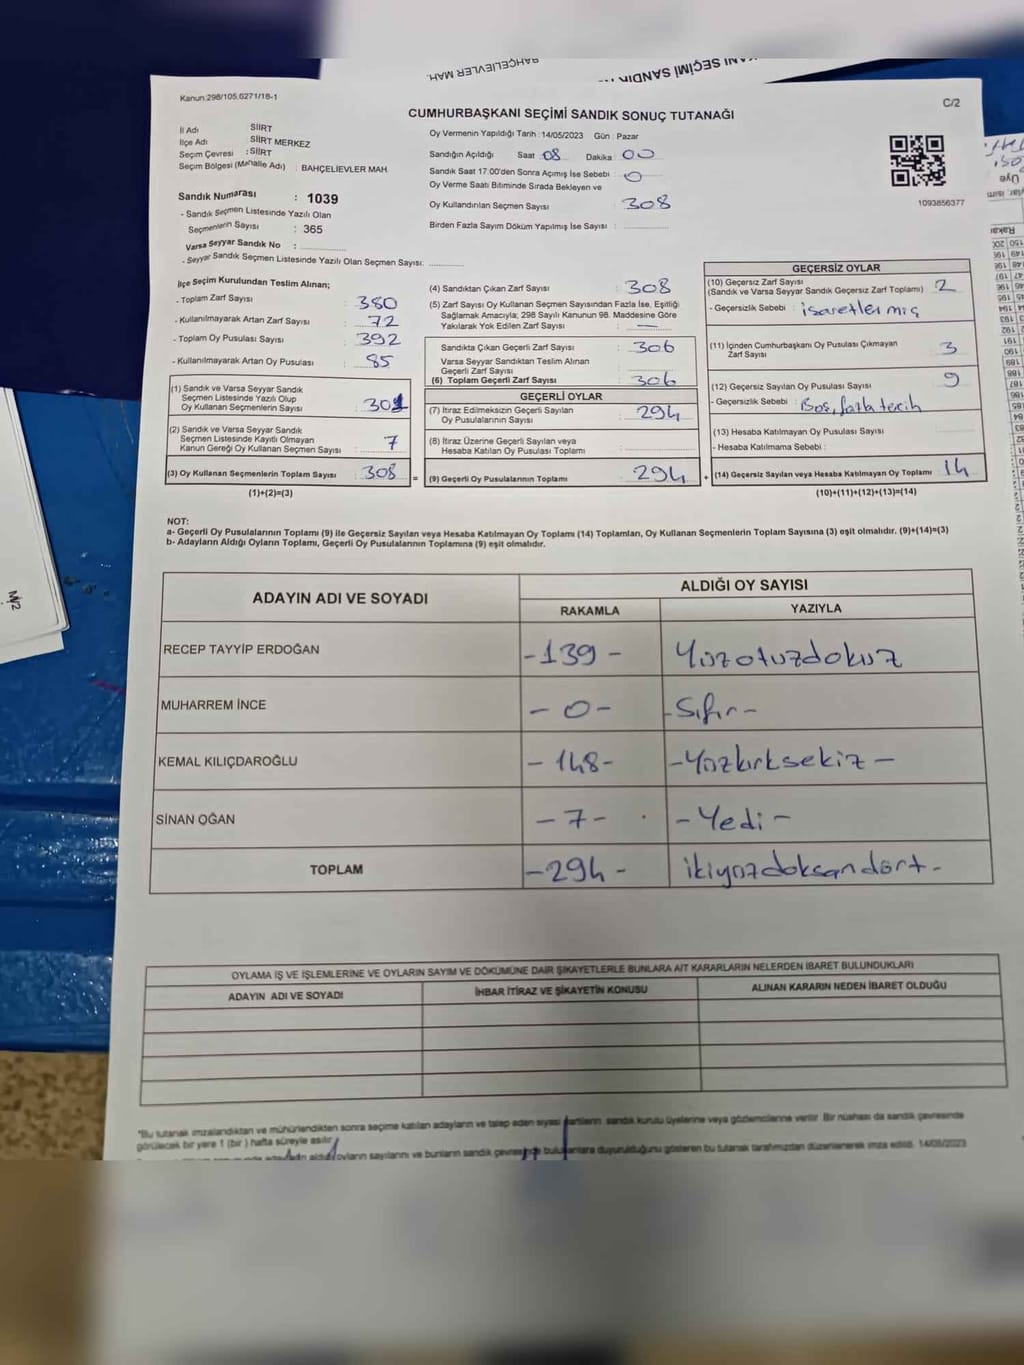 BAHÇELİEVLER MAH.
Kanun:298/105,6271/18-1
C/2
CUMHURBAŞKANI SEÇİMİ SANDIK SONUÇ TUTANAĞI
İl Adı : SİİRT
İlçe Adı : SİİRT MERKEZ
Seçim Çevresi : SİİRT
Seçim Bölgesi (Mahalle Adı) : BAHÇELİEVLER MAH.
Sandık Numarası : 1039
- Sandık Seçmen Listesinde Yazılı Olan
Seçmenlerin Sayısı : 365
Varsa Seyyar Sandık No :
- Seyyar Sandık Seçmen Listesinde Yazılı Olan Seçmen Sayısı:
Oy Vermenin Yapıldığı Tarih :14/05/2023 Gün : Pazar
Sandığın Açıldığı Saat 08 Dakika 00
Sandık Saat 17.00'den Sonra Açımış İse Sebebi : 0
Oy Verme Saati Bitiminde Sırada Bekleyen ve
Oy Kullandırılan Seçmen Sayısı : 308
Birden Fazla Sayım Döküm Yapılmış İse Sayısı :
1093856377
İlçe Seçim Kurulundan Teslim Alınan;
- Toplam Zarf Sayısı : 380
- Kullanılmayarak Artan Zarf Sayısı : 72
- Toplam Oy Pusulası Sayısı : 392
- Kullanılmayarak Artan Oy Pusulası : 85
(1) Sandık ve Varsa Seyyar Sandık
Seçmen Listesinde Yazılı Olup
Oy Kullanan Seçmenlerin Sayısı : 301
(2) Sandık ve Varsa Seyyar Sandık
Seçmen Listesinde Kayıtlı Olmayan
Kanun Gereği Oy Kullanan Seçmen Sayısı : 7
(3) Oy Kullanan Seçmenlerin Toplam Sayısı : 308
(1)+(2)=(3)
(4) Sandıktan Çıkan Zarf Sayısı : 308
(5) Zarf Sayısı Oy Kullanan Seçmen Sayısından Fazla İse, Eşitliği
Sağlamak Amacıyla; 298 Sayılı Kanunun 98. Maddesine Göre
Yakılarak Yok Edilen Zarf Sayısı : —
Sandıkta Çıkan Geçerli Zarf Sayısı : 306
Varsa Seyyar Sandıktan Teslim Alınan
Geçerli Zarf Sayısı :
(6) Toplam Geçerli Zarf Sayısı : 306
GEÇERLİ OYLAR
(7) İtiraz Edilmeksizin Geçerli Sayılan
Oy Pusulalarının Sayısı : 294
(8) İtiraz Üzerine Geçerli Sayılan veya
Hesaba Katılan Oy Pusulası Toplamı :
= (9) Geçerli Oy Pusulalarının Toplamı : 294
GEÇERSİZ OYLAR
(10) Geçersiz Zarf Sayısı
(Sandık ve Varsa Seyyar Sandık Geçersiz Zarf Toplamı) : 2
- Geçersizlik Sebebi : işaretlenmiş
(11) İçinden Cumhurbaşkanı Oy Pusulası Çıkmayan
Zarf Sayısı : 3
(12) Geçersiz Sayılan Oy Pusulası Sayısı : 9
- Geçersizlik Sebebi : Boş, fazla tercih
(13) Hesaba Katılmayan Oy Pusulası Sayısı :
- Hesaba Katılmama Sebebi :
+ (14) Geçersiz Sayılan veya Hesaba Katılmayan Oy Toplamı : 14
(10)+(11)+(12)+(13)=(14)
NOT:
a- Geçerli Oy Pusulalarının Toplamı (9) ile Geçersiz Sayılan veya Hesaba Katılmayan Oy Toplamı (14) Toplamları, Oy Kullanan Seçmenlerin Toplam Sayısına (3) eşit olmalıdır. (9)+(14)=(3)
b- Adayların Aldığı Oyların Toplamı, Geçerli Oy Pusulalarının Toplamına (9) eşit olmalıdır.
ADAYIN ADI VE SOYADI
ALDIĞI OY SAYISI
RAKAMLA YAZIYLA
RECEP TAYYİP ERDOĞAN -139- Yüzotuzdokuz
MUHARREM İNCE -0- -Sıfır-
KEMAL KILIÇDAROĞLU -148- -Yüzkırksekiz-
SİNAN OĞAN -7- -Yedi-
TOPLAM -294- ikiyüzdoksandört-
OYLAMA İŞ VE İŞLEMLERİNE VE OYLARIN SAYIM VE DÖKÜMÜNE DAİR ŞİKAYETLERLE BUNLARA AİT KARARLARIN NELERDEN İBARET BULUNDUKLARI
ADAYIN ADI VE SOYADI İHBAR İTİRAZ VE ŞİKAYETİN KONUSU ALINAN KARARIN NEDEN İBARET OLDUĞU
"Bu tutanak imzalandıktan ve mühürlendikten sonra seçime katılan adayların ve talep eden siyasi partilerin sandık kurulu üyelerine veya gözlemcilerine verilir. Bir nüshası da sandık çevresinde
görülecek bir yere 1 (bir) hafta süreyle asılır.
oyların sayılarını ve bunların sandık çevresinde bulunanlara duyurulduğunu gösteren bu tutanak tarafımızdan düzenlenerek imza edildi. 14/05/2023